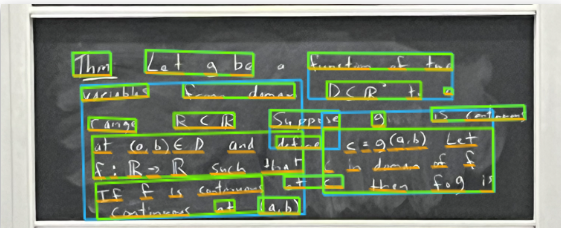 Thm Let g be a function of two
variables from domain D ⊂ ℝ² to a
range R ⊂ ℝ Suppose g is continuous
at (a,b) ∈ D and define c = g(a,b) Let
f : ℝ → ℝ such that c in domain of f
If f is continuous at c then f∘g is
continuous at (a,b)